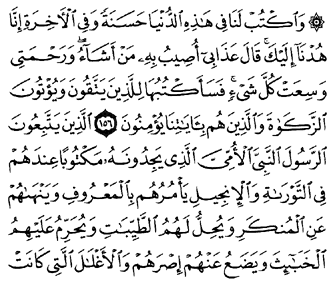 ۞ وَٱكۡتُبۡ لَنَا فِي هَٰذِهِ ٱلدُّنۡيَا حَسَنَةٗ وَفِي ٱلۡأٓخِرَةِ إِنَّا
هُدۡنَآ إِلَيۡكَۚ قَالَ عَذَابِيٓ أُصِيبُ بِهِۦ مَنۡ أَشَآءُۖ وَرَحۡمَتِي
وَسِعَتۡ كُلَّ شَيۡءٖۚ فَسَأَكۡتُبُهَا لِلَّذِينَ يَتَّقُونَ وَيُؤۡتُونَ
ٱلزَّكَوٰةَ وَٱلَّذِينَ هُم بِـَٔايَٰتِنَا يُؤۡمِنُونَ ١٥٦ ٱلَّذِينَ يَتَّبِعُونَ
ٱلرَّسُولَ ٱلنَّبِيَّ ٱلۡأُمِّيَّ ٱلَّذِي يَجِدُونَهُۥ مَكۡتُوبًا عِندَهُمۡ
فِي ٱلتَّوۡرَىٰةِ وَٱلۡإِنجِيلِ يَأۡمُرُهُم بِٱلۡمَعۡرُوفِ وَيَنۡهَىٰهُمۡ
عَنِ ٱلۡمُنكَرِ وَيُحِلُّ لَهُمُ ٱلطَّيِّبَٰتِ وَيُحَرِّمُ عَلَيۡهِمُ
ٱلۡخَبَٰٓئِثَ وَيَضَعُ عَنۡهُمۡ إِصۡرَهُمۡ وَٱلۡأَغۡلَٰلَ ٱلَّتِي كَانَتۡ